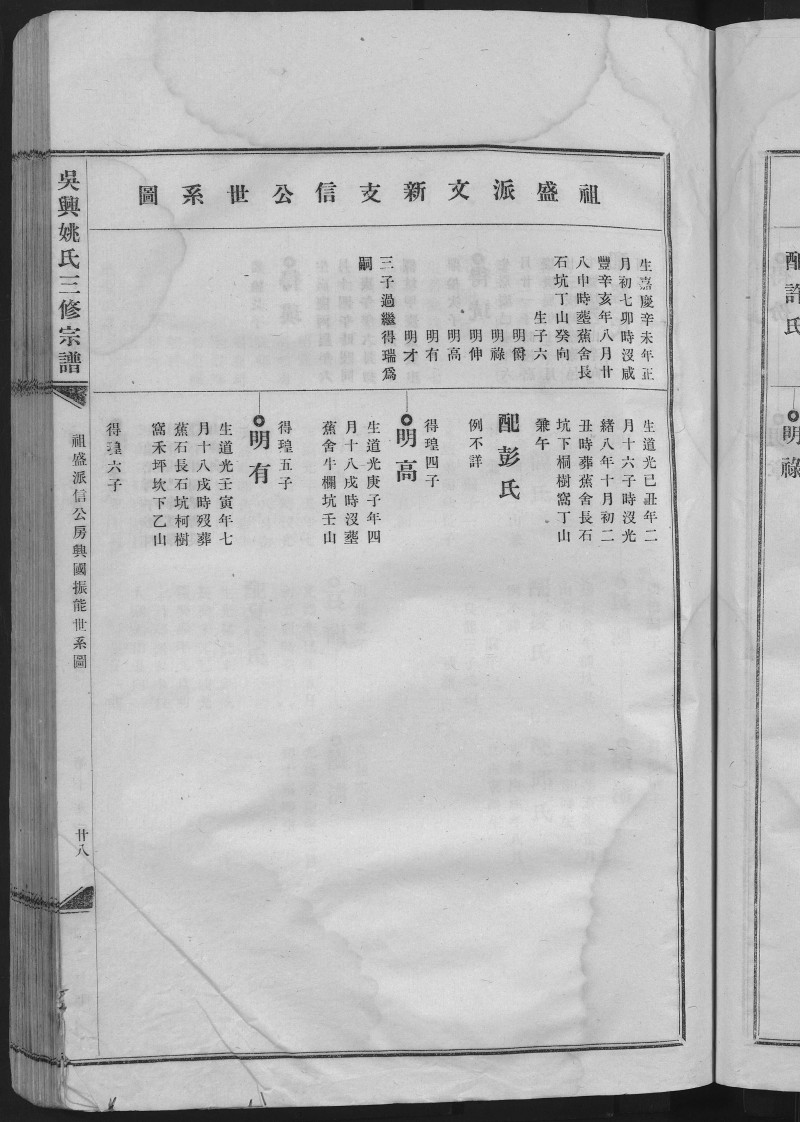 配許氏
明祿
祖盛派文新支信公世系圖
生嘉慶辛未年正
月初七卯時沒咸
豐辛亥年八月廿
八申時塟蕉舍長
石坑丁山癸向
生子六
明爵
明祿
明伸
明高
明有
明才
三子過繼得瑞爲
嗣
生道光已丑年二
月十六子時沒光
緒八年十月初二
丑時葬蕉舍長石
坑下桐樹窩丁山
兼午
配彭氏
例不詳
得瑝四子
明高
生道光庚子年四
月十八戌時沒塟
蕉舍牛欄坑壬山
得瑝五子
明有
生道光壬寅年七
月十八戌時歿葬
蕉石長石坑柯樹
窩禾坪坎下乙山
得瑝六子
吳興姚氏三修宗譜
祖盛派信公房興國振能世系圖
廿八